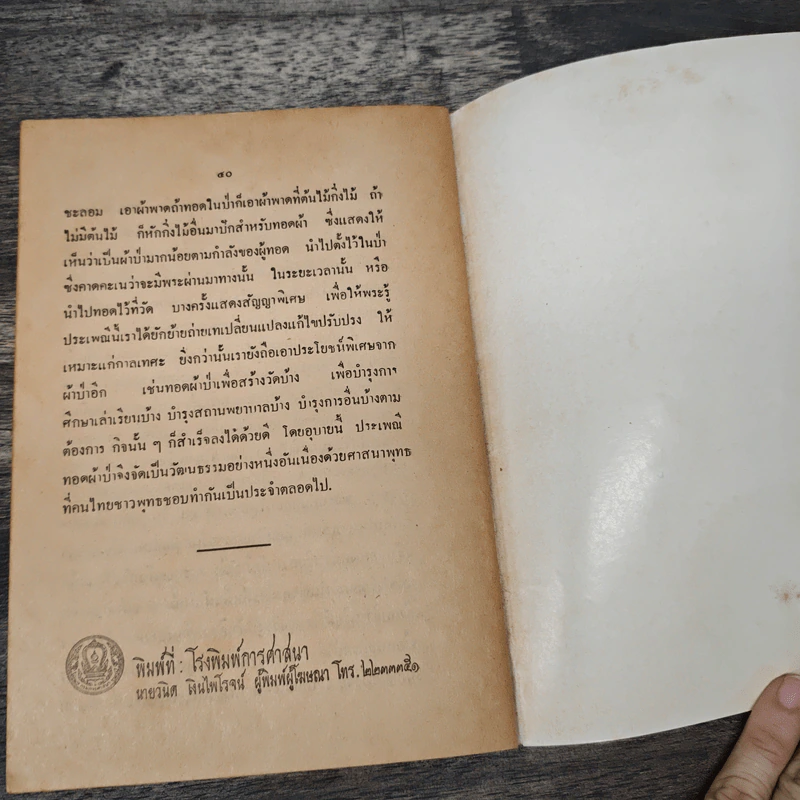 ๔๐
ชะลอม เอาผ้าพาดถ้าทอดในป่าก็เอาผ้าพาดที่ต้นไม้กิ่งไม้ ถ้า
ไม่มีต้นไม้ ก็หักกิ่งไม้อื่นมาปักสำหรับทอดผ้า ซึ่งแสดงให้
เห็นว่าเป็นผ้าป่ามากน้อยตามกำลังของผู้ทอด นำไปตั้งไว้ในป่า
ซึ่งคาดคะเนว่าจะมีพระผ่านมาทางนั้น ในระยะเวลานั้น หรือ
นำไปทอดไว้ที่วัด บางครั้งแสดงสัญญาพิเศษ เพื่อให้พระรู้
ประเพณีนี้เราได้ยักย้ายถ่ายเทเปลี่ยนแปลงแก้ไขปรับปรุง ให้
เหมาะแก่กาลเทศะ ยิ่งกว่านั้นเรายังถือเอาประโยชน์พิเศษจาก
ผ้าป่าอีก เช่นทอดผ้าป่าเพื่อสร้างวัดบ้าง เพื่อบำรุงการ
ศึกษาเล่าเรียนบ้าง บำรุงสถานพยาบาลบ้าง บำรุงการอื่นบ้างตาม
ต้องการ กิจนั้น ๆ ก็สำเร็จลงได้ด้วยดี โดยอุบายนี้ ประเพณี
ทอดผ้าป่าจึงจัดเป็นวัฒนธรรมอย่างหนึ่งอันเนื่องด้วยศาสนาพุทธ
ที่คนไทยชาวพุทธชอบทำกันเป็นประจำตลอดไป.
พิมพ์ที่ : โรงพิมพ์การศาสนา
นายวนิต เงินไพโรจน์ ผู้พิมพ์ผู้โฆษณา โทร. ๒๒๓๓๓๕๑